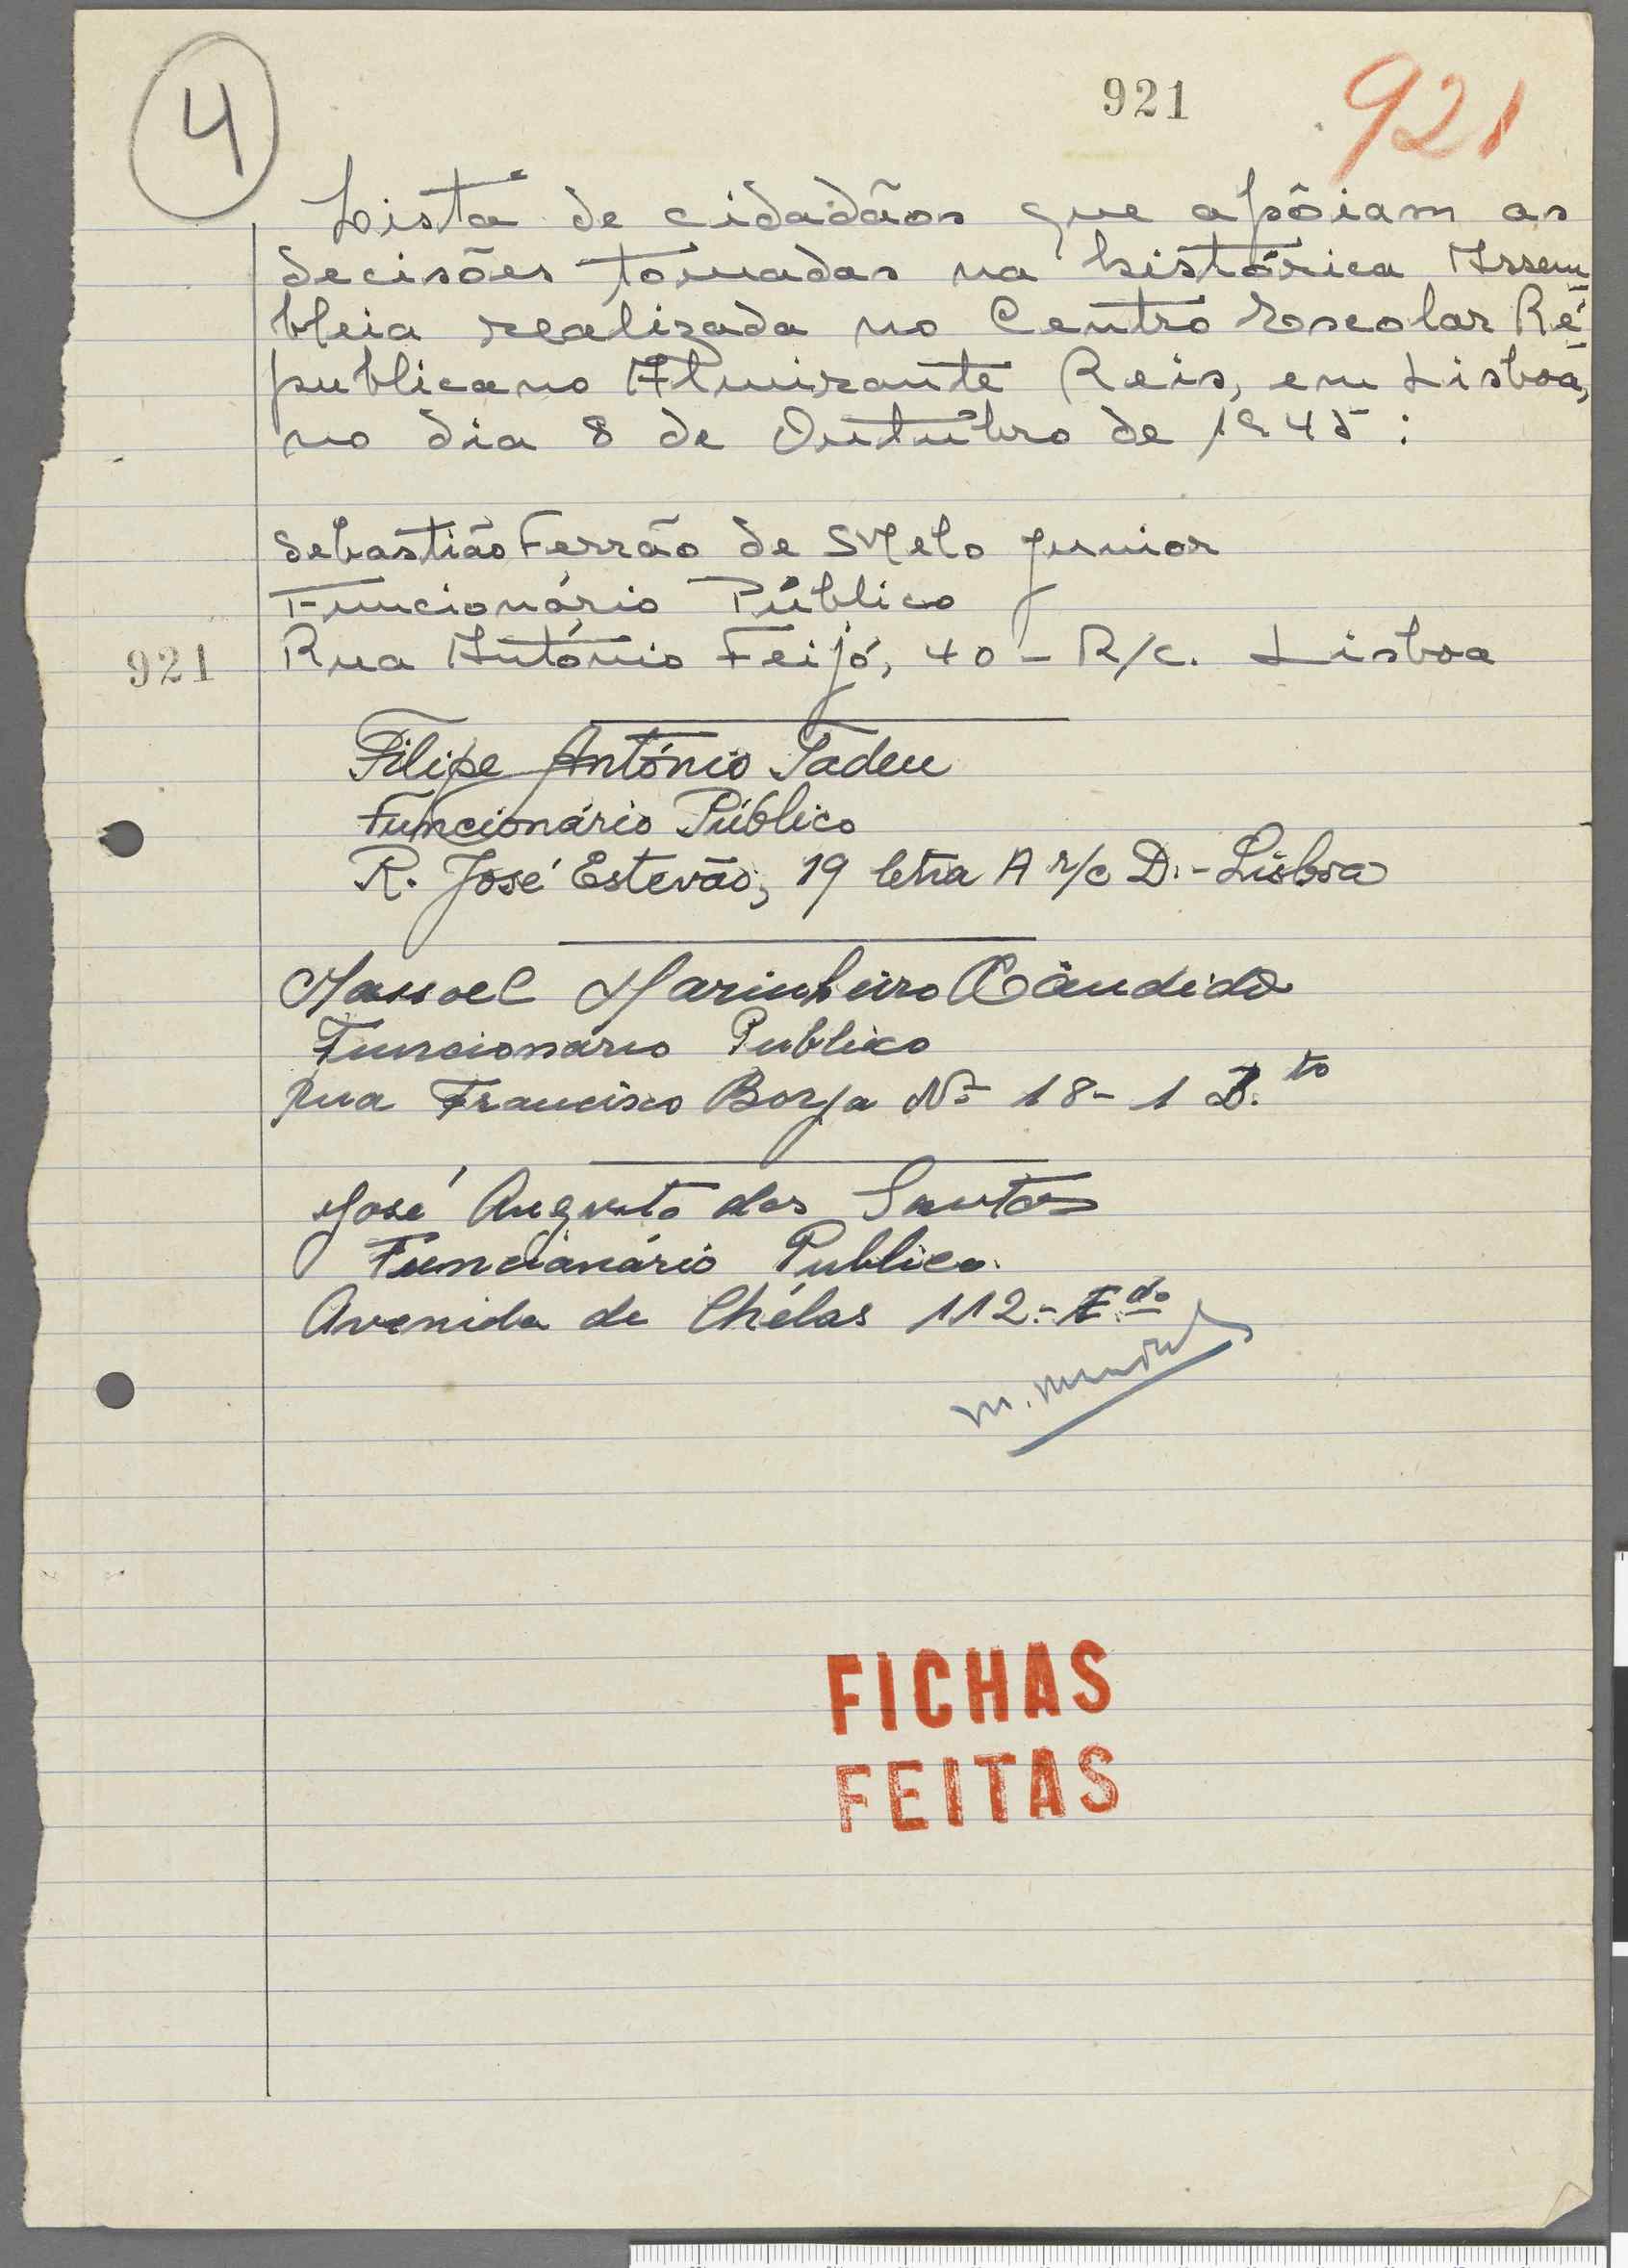 4
921
921
Lista de cidadãos que apôiam as
decisões tomadas na histórica Assem
bleia realizada no Centro Escolar Ré
publicano Almirante Reis, em Lisboa,
no dia 8 de Outubro de 1945:
Sebastião Ferrão de Melo Junior
Funcionário Público
921
Rua António Feijó, 40 - R/c. Lisboa
Filipe António Tadeu
Funcionário Público
R. José Estevão, 19 letra A r/c D.-Lisboa
Manoel Marinheiro Cândido
Funcionário Publico
Rua Francisco Borja Nº 18-1 D.to
José Augusto dos Santos
Funcionário Publico.
Avenida de Chélas 112.- E.do
FICHAS
FEITAS